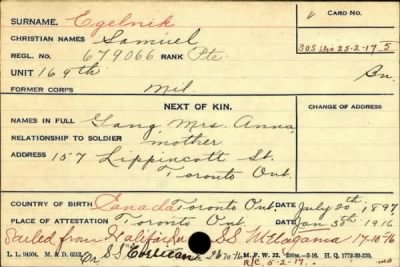 SURNAME. Egelnik
CARD NO.
CHRISTIAN NAMES Samuel
REGL. NO. 679066 RANK Pte
25-2-17
UNIT 169th Bn.
FORMER CORPS Mil.
NEXT OF KIN.
CHANGE OF ADDRESS
NAMES IN FULL Gang, Mrs. Anna,
RELATIONSHIP TO SOLDIER mother
ADDRESS 157 Lippincott St.
Toronto Ont.
COUNTRY OF BIRTH Canada Toronto Ont DATE July 20th 1897
PLACE OF ATTESTATION Toronto Ont DATE Jan. 30th 1916
Sailed from Halifax SS Metagama 17-10-16
Per SS Corsican
L. L. 94504. M. & D. M. F. W. 22. H. Q. 1772-39-339.
R/C, 5-2-17.